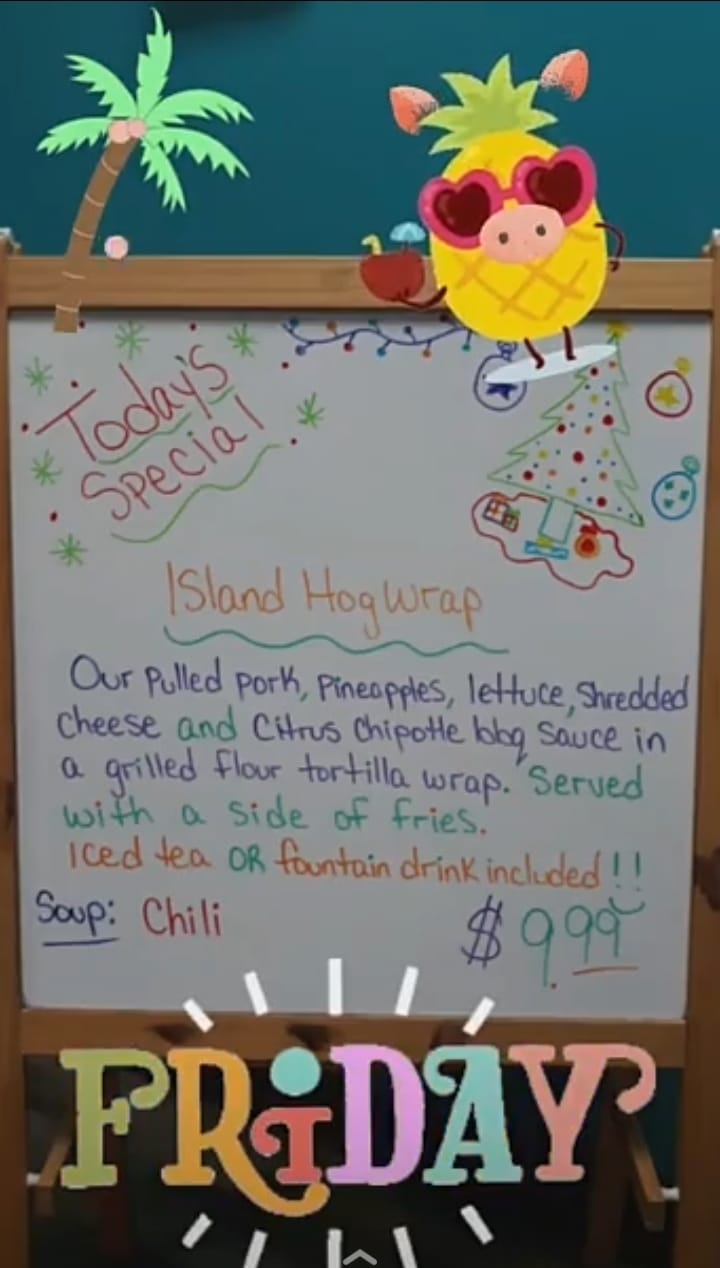 Today's
Special
Island Hog Wrap
Our Pulled pork, Pineapples, lettuce, Shredded
Cheese and Citrus Chipotle bbq Sauce in
a grilled flour tortilla wrap. Served
with a side of fries.
Iced tea OR fountain drink included!!
Soup: Chili
$9.99
FRiDAY